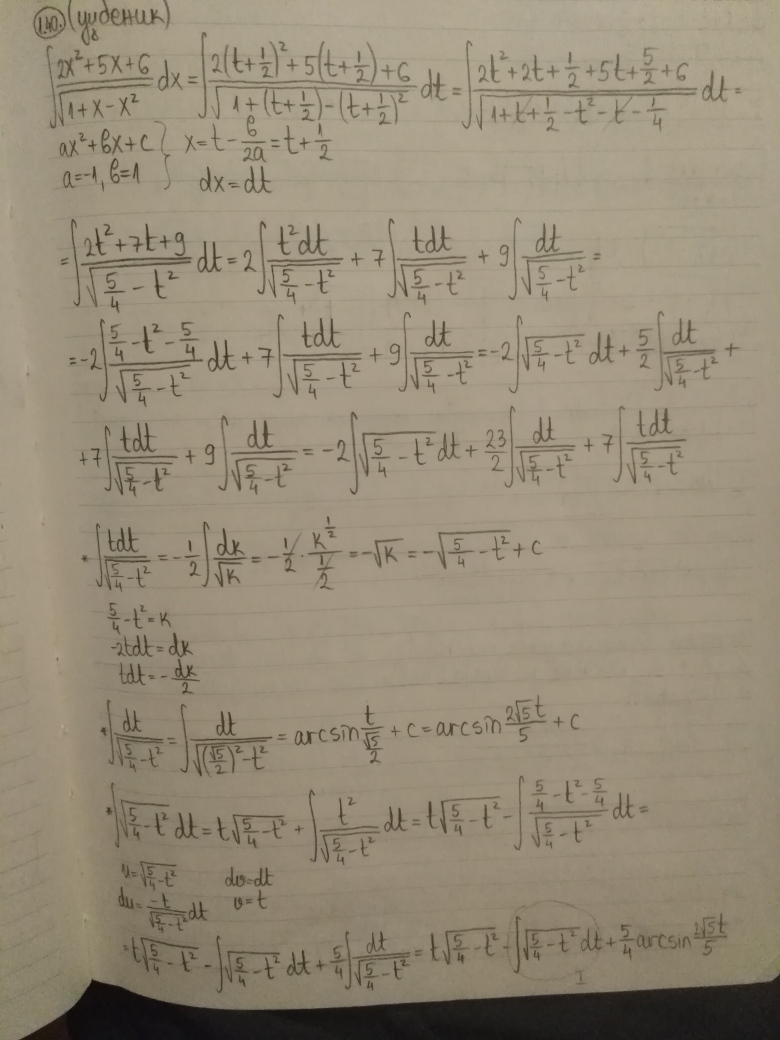 1.40. (учебник)
∫ (2x²+5x+6)/√(1+x-x²) dx = ∫ (2(t+1/2)²+5(t+1/2)+6)/√(1+(t+1/2)-(t+1/2)²) dt = ∫ (2t²+2t+1/2+5t+5/2+6)/√(1+t+1/2-t²-t-1/4) dt =
ax²+bx+c } x=t-b/2a=t+1/2
a=-1, b=1 } dx=dt
= ∫ (2t²+7t+9)/√(5/4-t²) dt = 2∫ t²dt/√(5/4-t²) + 7∫ tdt/√(5/4-t²) + 9∫ dt/√(5/4-t²) =
= -2∫ (5/4-t²-5/4)/√(5/4-t²) dt + 7∫ tdt/√(5/4-t²) + 9∫ dt/√(5/4-t²) = -2∫ √(5/4-t²) dt + 5/2 ∫ dt/√(5/4-t²) +
+7∫ tdt/√(5/4-t²) + 9∫ dt/√(5/4-t²) = -2∫ √(5/4-t²) dt + 23/2 ∫ dt/√(5/4-t²) + 7∫ tdt/√(5/4-t²)
* ∫ tdt/√(5/4-t²) = -1/2 ∫ dk/√k = -1/2 · k^(1/2)/(1/2) = -√k = -√(5/4-t²) + c
5/4-t²=k
-2tdt=dk
tdt=-dk/2
* ∫ dt/√(5/4-t²) = ∫ dt/√((√5/2)²-t²) = arcsin t/(√5/2) + c = arcsin 2√5t/5 + c
* ∫ √(5/4-t²) dt = t√(5/4-t²) + ∫ t²/√(5/4-t²) dt = t√(5/4-t²) - ∫ (5/4-t²-5/4)/√(5/4-t²) dt =
u=√(5/4-t²) dv=dt
du=-t/√(5/4-t²) dt v=t
= t√(5/4-t²) - ∫ √(5/4-t²) dt + 5/4 ∫ dt/√(5/4-t²) = t√(5/4-t²) - ∫ √(5/4-t²) dt + 5/4 arcsin 2√5t/5
I